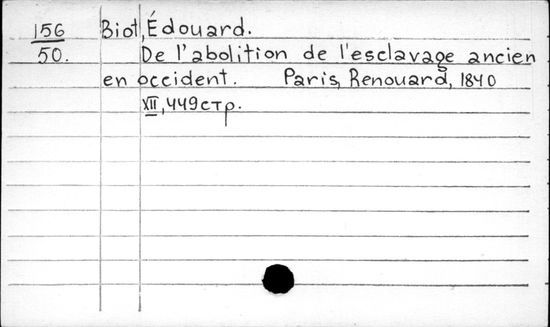 156 Biot, Édouard.
50. De l'abolition de l'esclavage ancien
en occident. Paris, Renouard, 1840
XII, 449 стр.